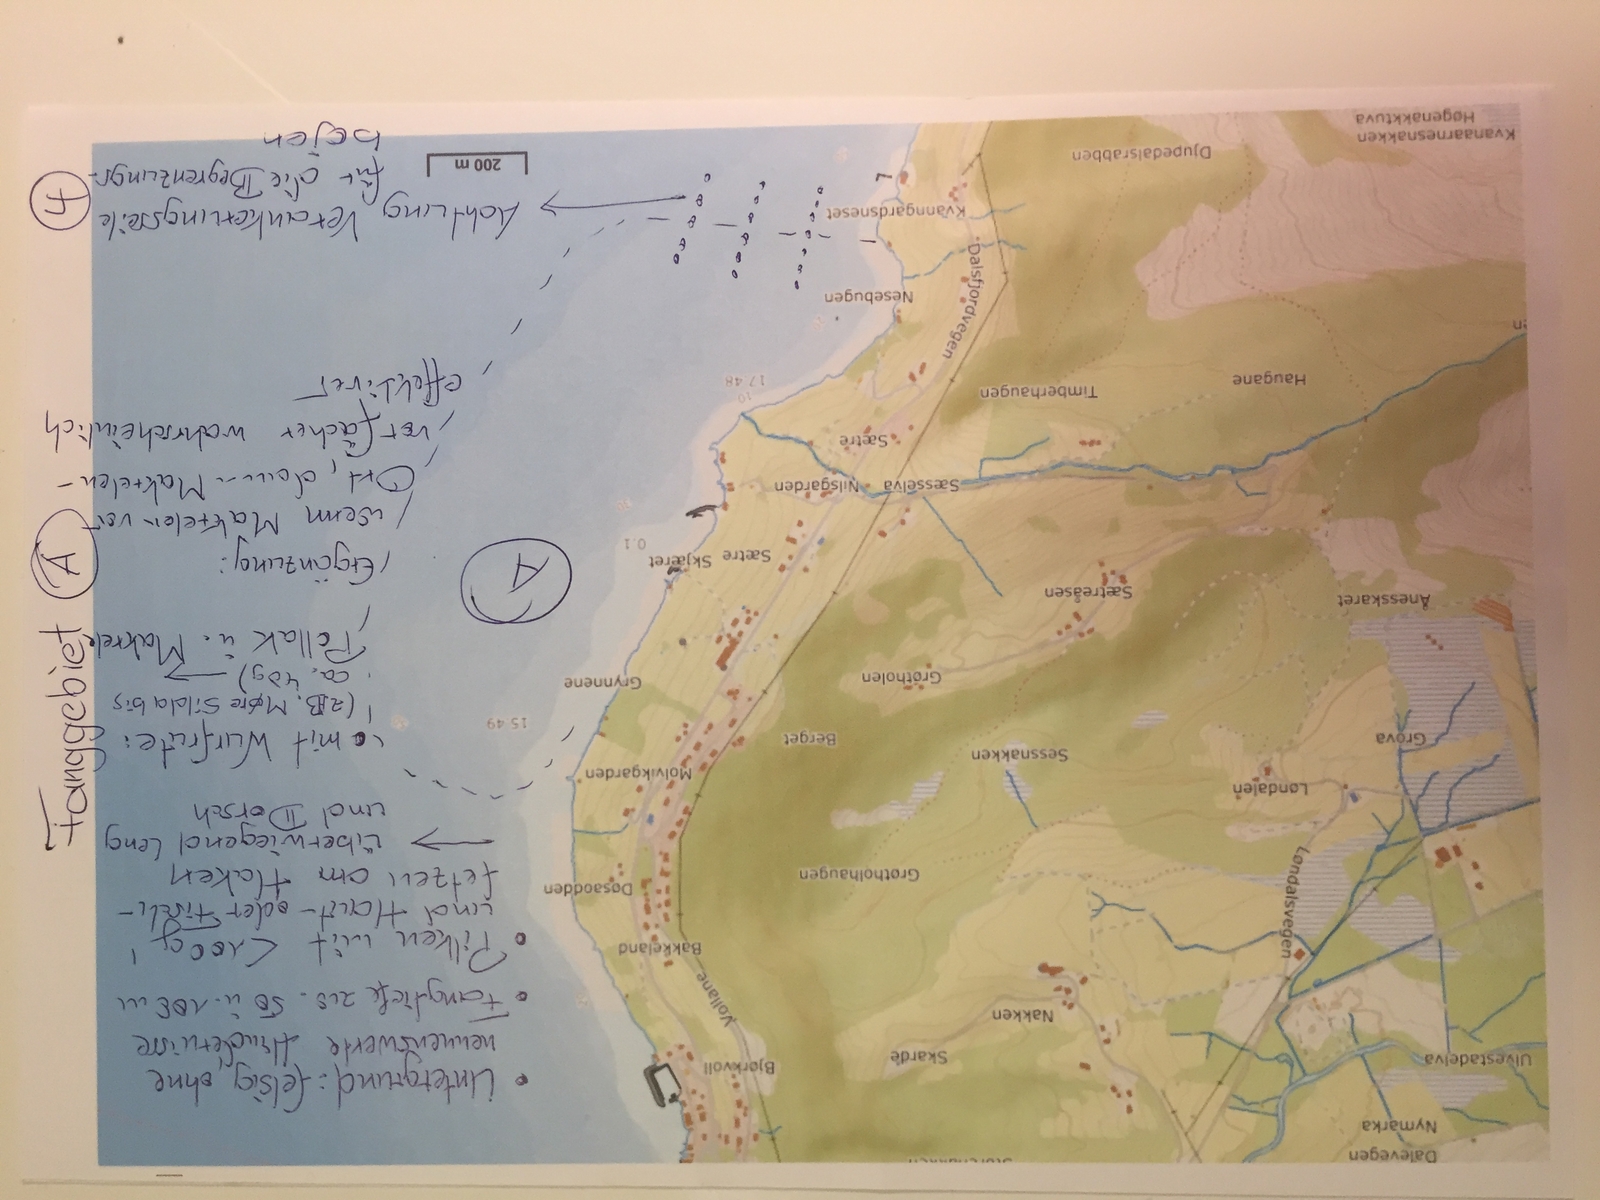 Fanggebiet A
• Untergrund: felsig, ohne
nennenswerte Hindernisse
• Fangtiefe zw. 50 u. 100 m
• Pilken mit <100g
und Haut- oder Fisch-
fetzen am Haken
→ Überwiegend Leng
und Dorsch
• mit Wurfrute:
(z.B. Møre Silda bis
ca. 40g) →
Pollak u. Makrele
Ergänzung:
wenn Makrelen vor
Ort, dann Makrelen-
vorfächer wahrscheinlich
effektiver
Achtung Verankerungsseile
für die Begrenzungs-
bojen
A
200 m
Dalevegen
Nymarka
Ulvestadelva
Bjørkvoll
Skarde
Nakken
Vollane
Bakkeland
Løndalsvegen
Døsaodden
Grøtholhaugen
Løndalen
Molvikgarden
Sessnakken
Berget
Grova
15 49
Grynnene
Grøtholen
Sætreåsen
Ånesskaret
Sætre Skjæret
Sætre
0.1
Nilsgarden
Sæsselva
Sætre
17 48
10
Timberhaugen
Haugane
Nesebugen
Dalsfjordvegen
Kvanngardsneset
Djupedalsrabben
Kvanaarnesnakken
Høgenakktuva